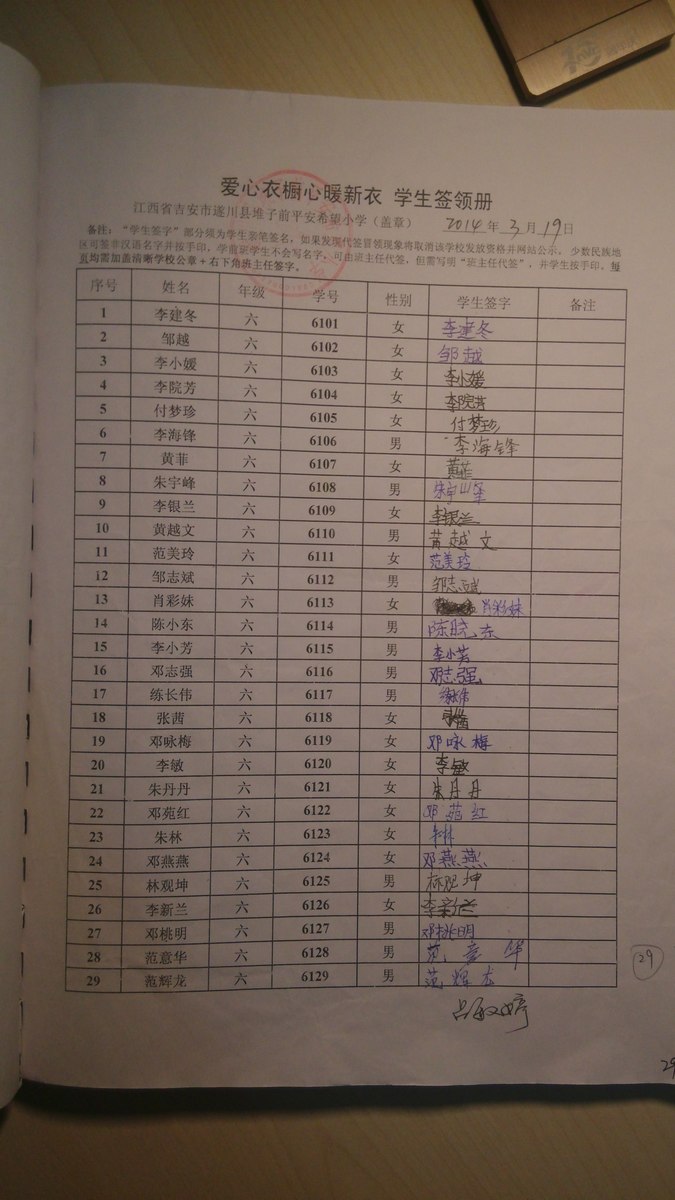 爱心衣橱心暖新衣 学生签领册
江西省吉安市遂川县堆子前平安希望小学（盖章） 2014 年 3 月 19 日
备注："学生签字"部分须为学生亲笔签名，如果发现代签冒领现象将取消该学校发放资格并网站公示。少数民族地
区可签非汉语名字并按手印。学前班学生不会写名字，可由班主任代签，但需写明"班主任代签"，并学生按手印。每
页均需加盖清晰学校公章+右下角班主任签字。
序号 姓名 年级 学号 性别 学生签字 备注
1 李建冬 六 6101 女 李建冬
2 邹越 六 6102 女 邹越
3 李小媛 六 6103 女 李小媛
4 李院芳 六 6104 女 李院芳
5 付梦珍 六 6105 女 付梦珍
6 李海锋 六 6106 男 李海锋
7 黄菲 六 6107 女 黄菲
8 朱宇峰 六 6108 男 朱宇峰
9 李银兰 六 6109 女 李银兰
10 黄越文 六 6110 男 黄越文
11 范美玲 六 6111 女 范美玲
12 邹志斌 六 6112 男 邹志斌
13 肖彩妹 六 6113 女 肖彩妹
14 陈小东 六 6114 男 陈晓东
15 李小芳 六 6115 男 李小芳
16 邓志强 六 6116 男 邓志强
17 练长伟 六 6117 男 练长伟
18 张茜 六 6118 女
19 邓咏梅 六 6119 女 邓咏梅
20 李敏 六 6120 女 李敏
21 朱丹丹 六 6121 女 朱丹丹
22 邓苑红 六 6122 女 邓苑红
23 朱林 六 6123 女 朱林
24 邓燕燕 六 6124 女 邓燕燕
25 林观坤 六 6125 男 林观坤
26 李新兰 六 6126 女 李新兰
27 邓桃明 六 6127 男 邓桃明
28 范意华 六 6128 男 范意华
29 范辉龙 六 6129 男 范辉龙
29
29